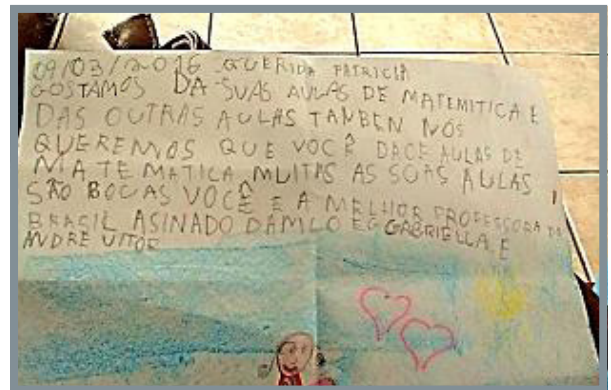 09/03/2016 QUERIDA PATRICIA
GOSTAMOS DA SUAS AULAS DE MATEMITICA E
DAS OUTRAS AULAS TANBEN NÓS
QUEREMOS QUE VOCÊ DACE AULAS DE
MATEMATICA MUITAS AS SUAS AULAS
SÃO BOUAS VOCÊ E A MELHOR PROFESSORA DO
BRASIL ASINADO DAMILO E GABRIELLA E
ANDRE VITOR